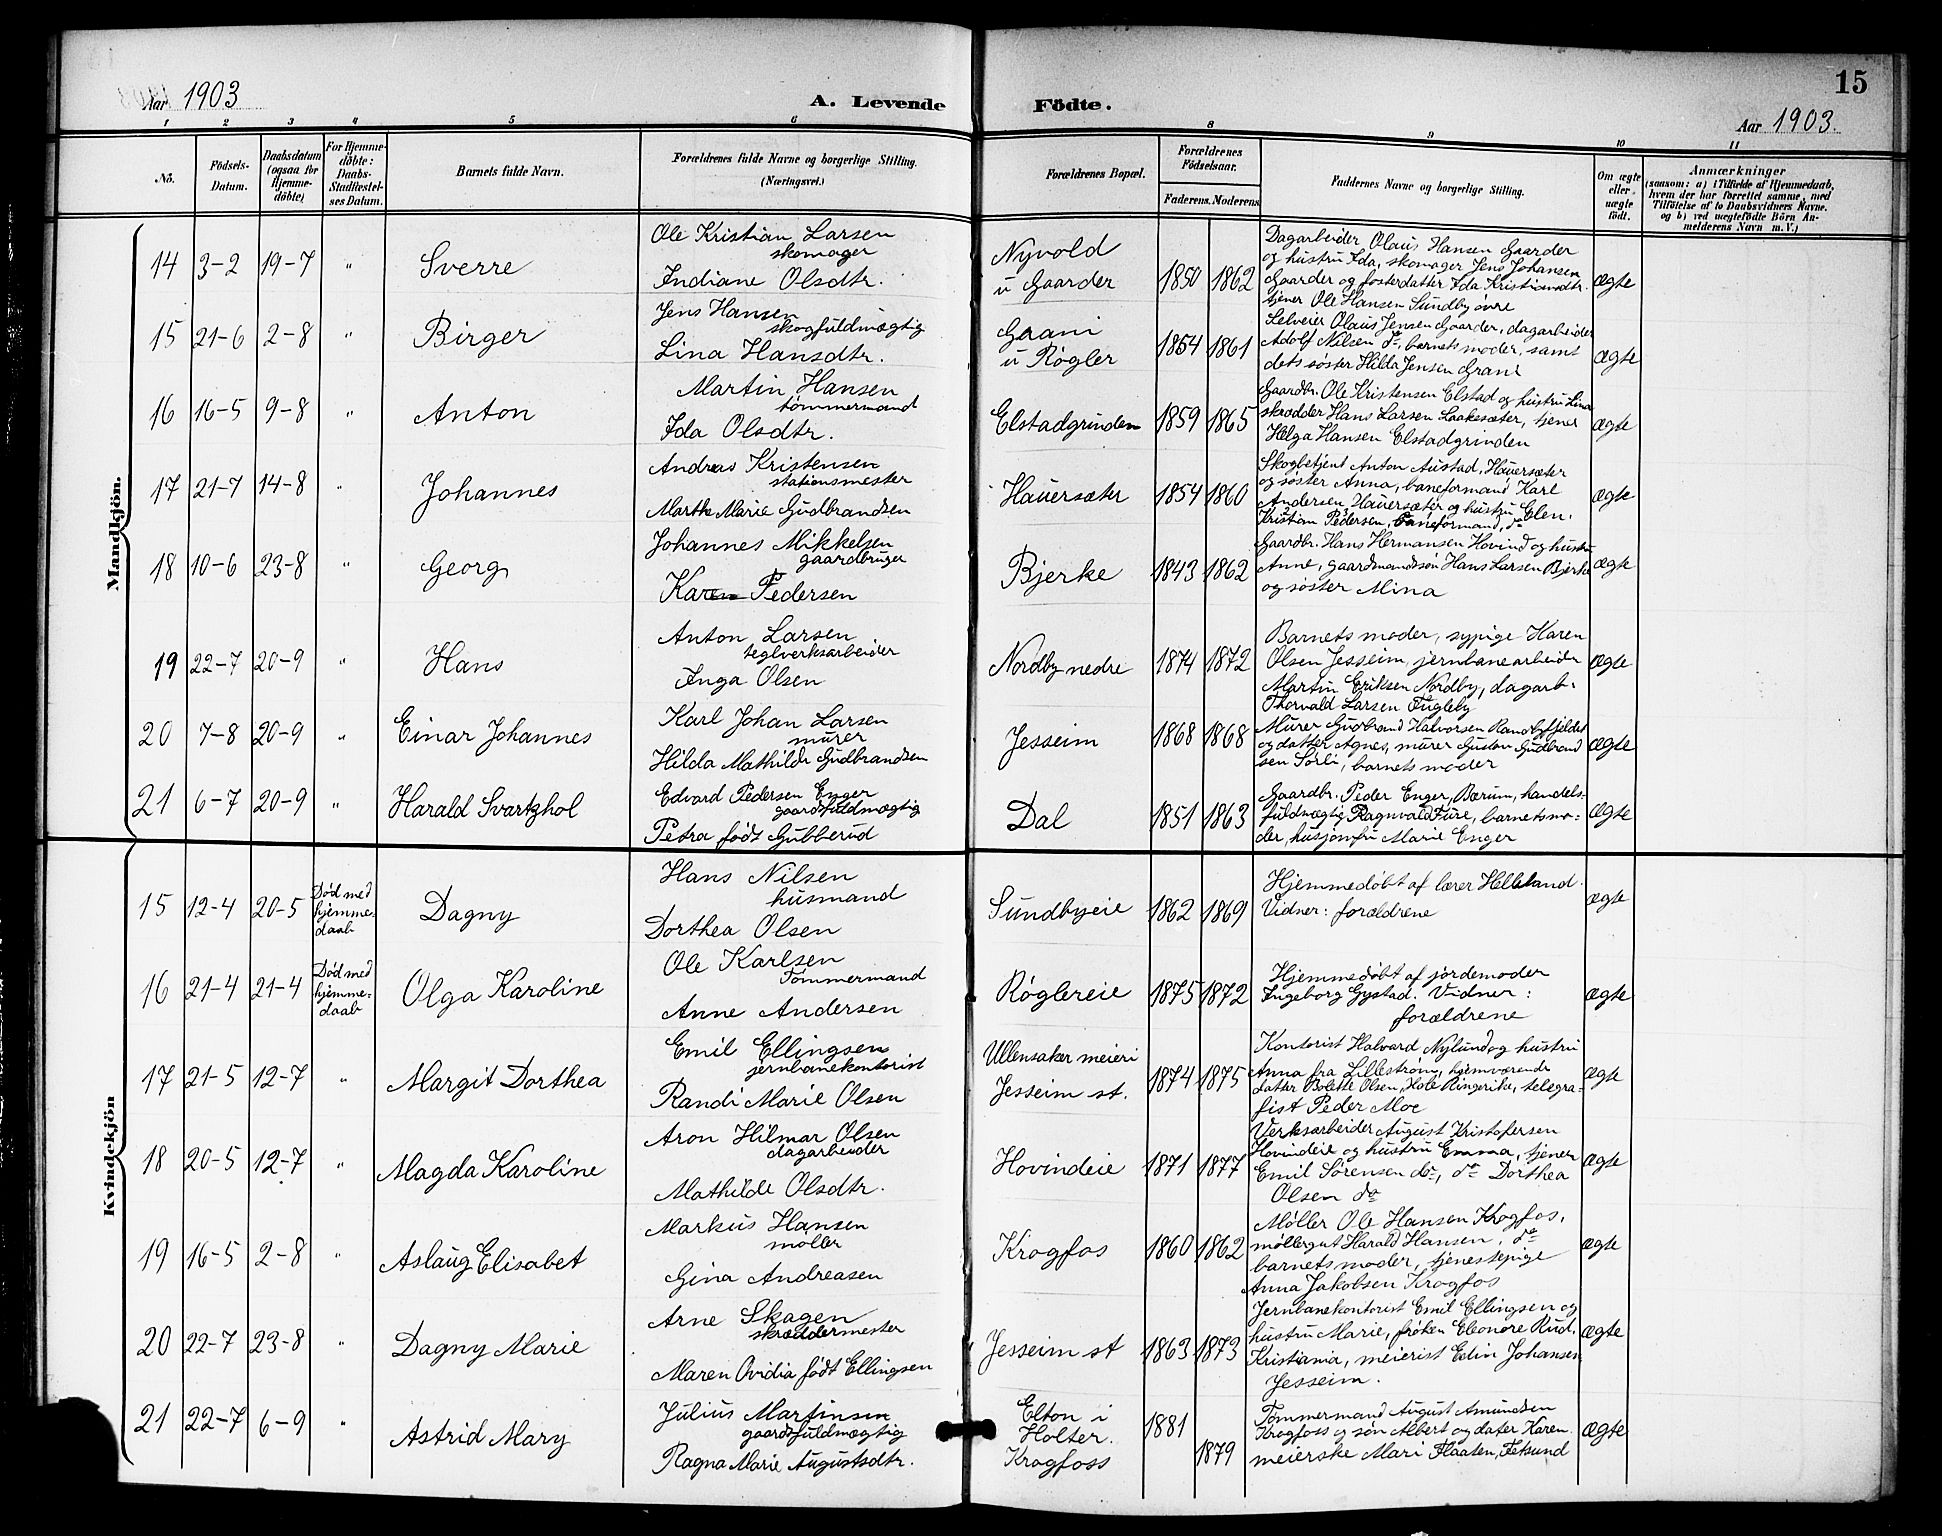 Aar 1903
A. Levende
Födte.
15
Aar 1903.
1 2 3 4 5 6 8 9 10 11
Nö.
Födsels-
Datum.
Daabsdatum
(ogsaa for
Hjemme-
döbte)
For Hjemme-
döbte:
Daabs-
Stadfæstel-
ses Datum.
Barnets fulde Navn.
Forældrenes fulde Navne og borgerlige Stilling.
(Næringsvei.)
Forældrenes Bopæl.
Forældrenes
Födselsaar.
Faderens. Moderens
Faddernes Navne og borgerlige Stilling.
Om ægte
eller
uægte
födt.
Anmærkninger
(saasom: a) i Tilfælde af Hjemmedaab,
hvem der har forrettet samme, med
Tilföielse af to Daabsvidners Navne.
og b) ved uægtefödte Börn An-
melderens Navn m.V.)
Mandkjön.
14 3-2 19-7 " Sverre
Ole Kristian Larsen
skomager
Indiane Olsdtr.
Nyvold
u Gaarder
1850 1862
Dagarbeider Olaus Hansen Gaarder
og hustru Ida, skomager Jens Johansen
Gaarder og fosterdatter Ida Kristiansdtr.
tjener Ole Hansen Sundby øvre
ægte
15 21-6 2-8 " Birger
Jens Hansen
skogfuldmægtig
Lina Hansdtr.
Grani
u Røgler
1854 1861
Selveier Olaus Jensen Gaarder, dagarbeider
Adolf Nilsen do, barnets moder, samt
dets søster Hilda Jensen Grani
ægte
16 16-5 9-8 " Anton
Martin Hansen
tømmermand
Ida Olsdtr.
Elstadgrinden
1859 1865
Gaardbr. Ole Kristensen Elstad og hustru Lina
skrædder Hans Larsen Laakesæter, tjener
Helga Hansen Elstadgrinden
ægte
17 21-7 14-8 " Johannes
Andreas Kristensen
stationsmester
Marthe Marie Gudbrandsen
Hauersæter
1854 1860
Skogbetjent Anton Austad, Hauersæter
og søster Anna, baneformand Karl
Andersen Hauersæter og hustru Elen.
Kristian Pedersen, baneformand, do
ægte
18 10-6 23-8 " Georg
Johannes Mikkelsen
gaardbruger
Karen Pedersen
Bjerke
1843 1862
Gaardbr. Hans Hermansen Hovind og hustru
Anne, gaardmandssøn Hans Larsen Bjerke
og søster Mina
ægte
19 22-7 20-9 " Hans
Anton Larsen
teglverksarbeider
Inga Olsen
Nordby nedre
1874 1872
Barnets moder, sypige Karen
Olsen Jesseim, jernbanearbeider
Martin Eriksen Nordby, dagarb.
Thorvald Larsen Fugleby
ægte
20 7-8 20-9 " Einar Johannes
Karl Johan Larsen
murer
Hilda Mathilde Gudbrandsen
Jesseim
1868 1868
Murer Gudbrand Halvorsen Randbyfjeldet
og datter Agnes, murer Gustav Gudbrand
sen Sørli, barnets moder
ægte
21 6-7 20-9 " Harald Svartzhol
Edvard Pedersen Enger
gaardsfuldmægtig
Petra født Gubberud
Dal
1851 1863
Gaardbr. Peder Enger, Bærum, handels-
fuldmægtig Ragnvald Fure, barnets mo-
der, husjomfru Marie Enger
ægte
Kvindekjön
15 12-4 20-5 Død med
hjemme-
daab
Dagny
Hans Nilsen
husmand
Dorthea Olsen
Sundbyeie
1862 1869
Hjemmedøbt af lærer Helleland.
Vidner: forældrene
ægte
16 21-4 21-4 Død med
hjemme-
daab
Olga Karoline
Ole Karlsen
Tømmermand
Anne Andersen
Røglereie
1875 1872
Hjemmedøbt af jordemoder
Ingeborg Gystad. Vidner:
forældrene
ægte
17 21-5 12-7 " Margit Dorthea
Emil Ellingsen
jernbanekontorist
Randi Marie Olsen
Ullensaker meieri
Jesseim st.
1874 1875
Kontorist Halvard Nylund og hustru
Anna fra Lillestrøm, hjemværende
datter Bolette Olsen, Hole Ringerike, telegra-
fist Peder Moe
ægte
18 20-5 12-7 " Magda Karoline
Aron Hilmar Olsen
dagarbeider
Mathilde Olsdtr.
Hovindeie
1871 1877
Verksarbeider August Kristofersen
Hovindeie og hustru Emma, tjener
Emil Sørensen do, do Dorthea
Olsen do
ægte
19 16-5 2-8 " Aslaug Elisabet
Markus Hansen
møller
Gina Andreasen
Krogfos
1860 1862
Møller Ole Hansen Krogfos,
møllergut Harald Hansen, do
barnets moder, tjenestepige
Anna Jakobsen Krogfos
ægte
20 22-7 23-8 " Dagny Marie
Arne Skagen
skræddermester
Maren Ovidia født Ellingsen
Jesseim st
1863 1873
Jernbanekontorist Emil Ellingsen og
hustru Marie, frøken Eleonore Rud,
Kristiania, meierist Edin Johansen
Jesseim.
ægte
21 22-7 6-9 " Astrid Mary
Julius Martinsen
gaardsfuldmægtig
Ragna Marie Augustsdtr.
Elton i
Holter.
Krogfoss
1881
1879
Tømmermand August Amundsen
Krogfoss og søn Albert og dater Karen.
meierske Mari Flaaten, Fetsund
ægte